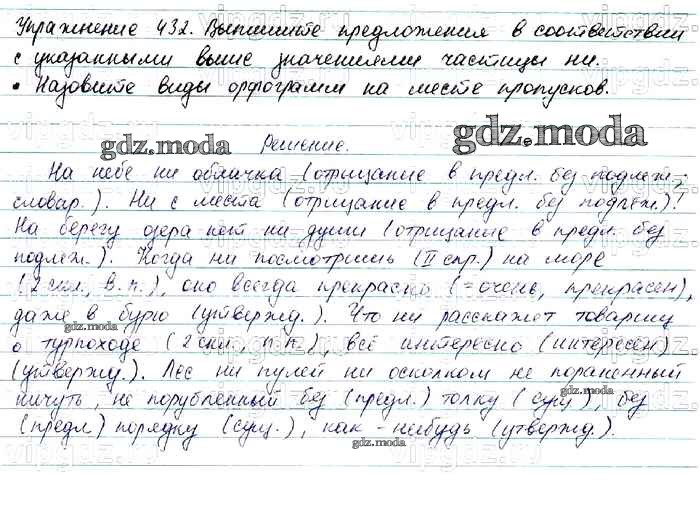 Упражнение 432. Выпишите предложения в соответствии
с указанными выше значениями частицы ни.
• Назовите виды орфограмм на месте пропусков.
gdz.moda Решение. gdz.moda
На небе ни облачка (отрицание в предл. без подлеж.,
словар.). Ни с места (отрицание в предл. без подлеж.)!
На берегу озера нет ни души (отрицание в предл. без
подлеж.). Когда ни посмотришь (II спр.) на море
(2 скл., в.п.), оно всегда прекрасно (=очень, прекрасен),
даже в бурю (утвержд.). Что ни расскажет товарищ
gdz.moda
о турпоходе (2 скл., п.п.), всё интересно (интересен)
gdz.moda
(утвержд.). Лес ни пулей ни осколком не пораненный
ничуть, не порубленный без (предл.) толку (сущ.), без
(предл) порядку (сущ.), как-нибудь (утвержд.).
gdz.moda
gdz.moda